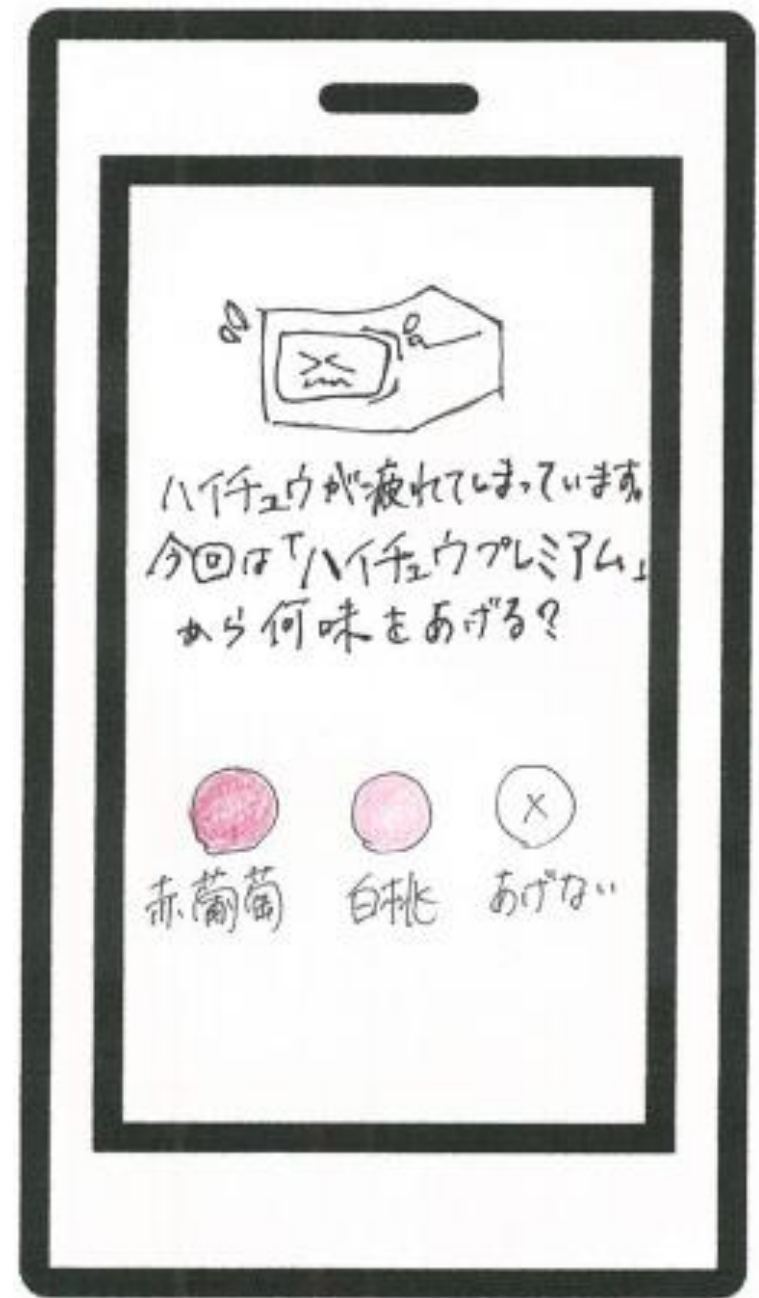 ハイチュウが疲れてしまっています。
今回は「ハイチュウプレミアム」
から何味をあげる？
×
赤葡萄 白桃 あげない